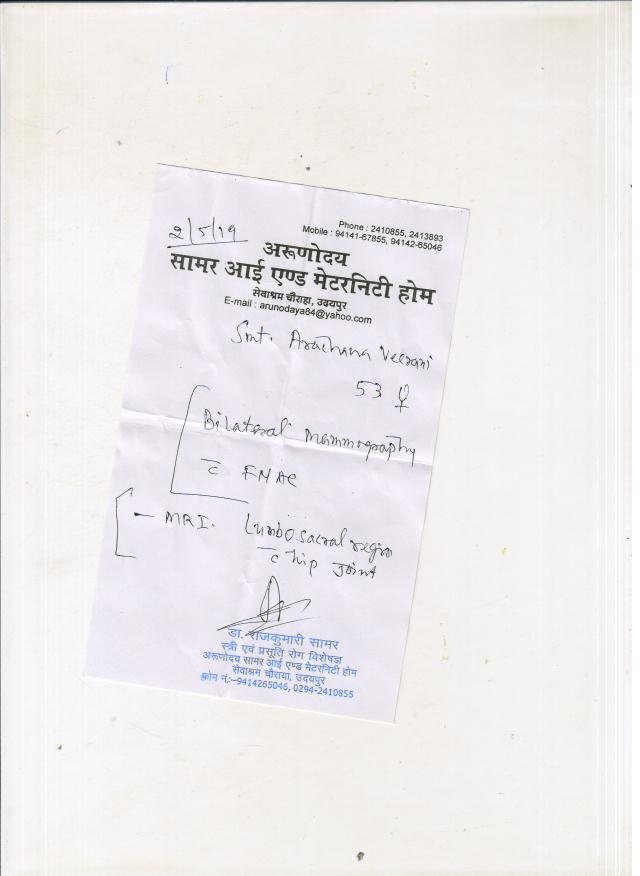 Phone : 2410855, 2413893
Mobile : 94141-67855, 94142-65046
2/5/19
अरूणोदय
सामर आई एण्ड मेटरनिटी होम
सेवाश्रम चौराहा, उदयपुर
E-mail : arunodaya84@yahoo.com
Smt. Arachana Veerani
53 ♀
Bilateral Mammography
c̄ FNAC
– MRI. Lumbosacral region
c̄ hip joint
डा. राजकुमारी सामर
स्त्री एवं प्रसूति रोग विशेषज्ञ
अरूणोदय सामर आई एण्ड मेटरनिटी होम
सेवाश्रम चौराया, उदयपुर
फ़ोन नं:–9414265046, 0294-2410855